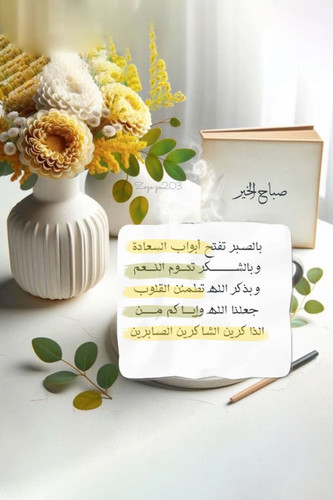 صباح الخير
بالصبر تفتح أبواب السعادة
وبالشـــكر تدوم النـعـم
وبذكر الله تطمئن القلوب
جعلنا الله وإياكم مـــن
الذاكرين الشاكرين الصابرين